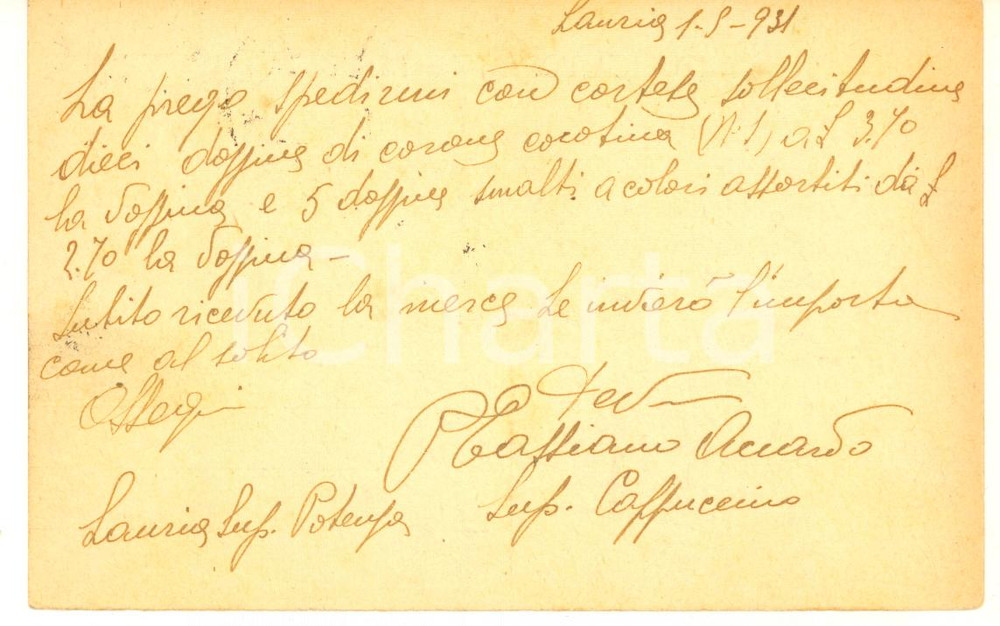 Lauria 1-5-931
La prego spedirmi con cortese sollecitudine
dieci dozzine di corone cocotina (N. 1) a £ 3.70
la dozzina e 5 dozzine smalti a colori assortiti da £
2.70 la dozzina -
Subito ricevuto la merce Le invierò l'importo
come al solito
Ossequi
Dev
P. Cassiano Accardo
Sup. Cappuccino
Lauria Sup. Potenza
iCharta